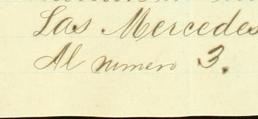 Las Mercedes
Al numero 3.